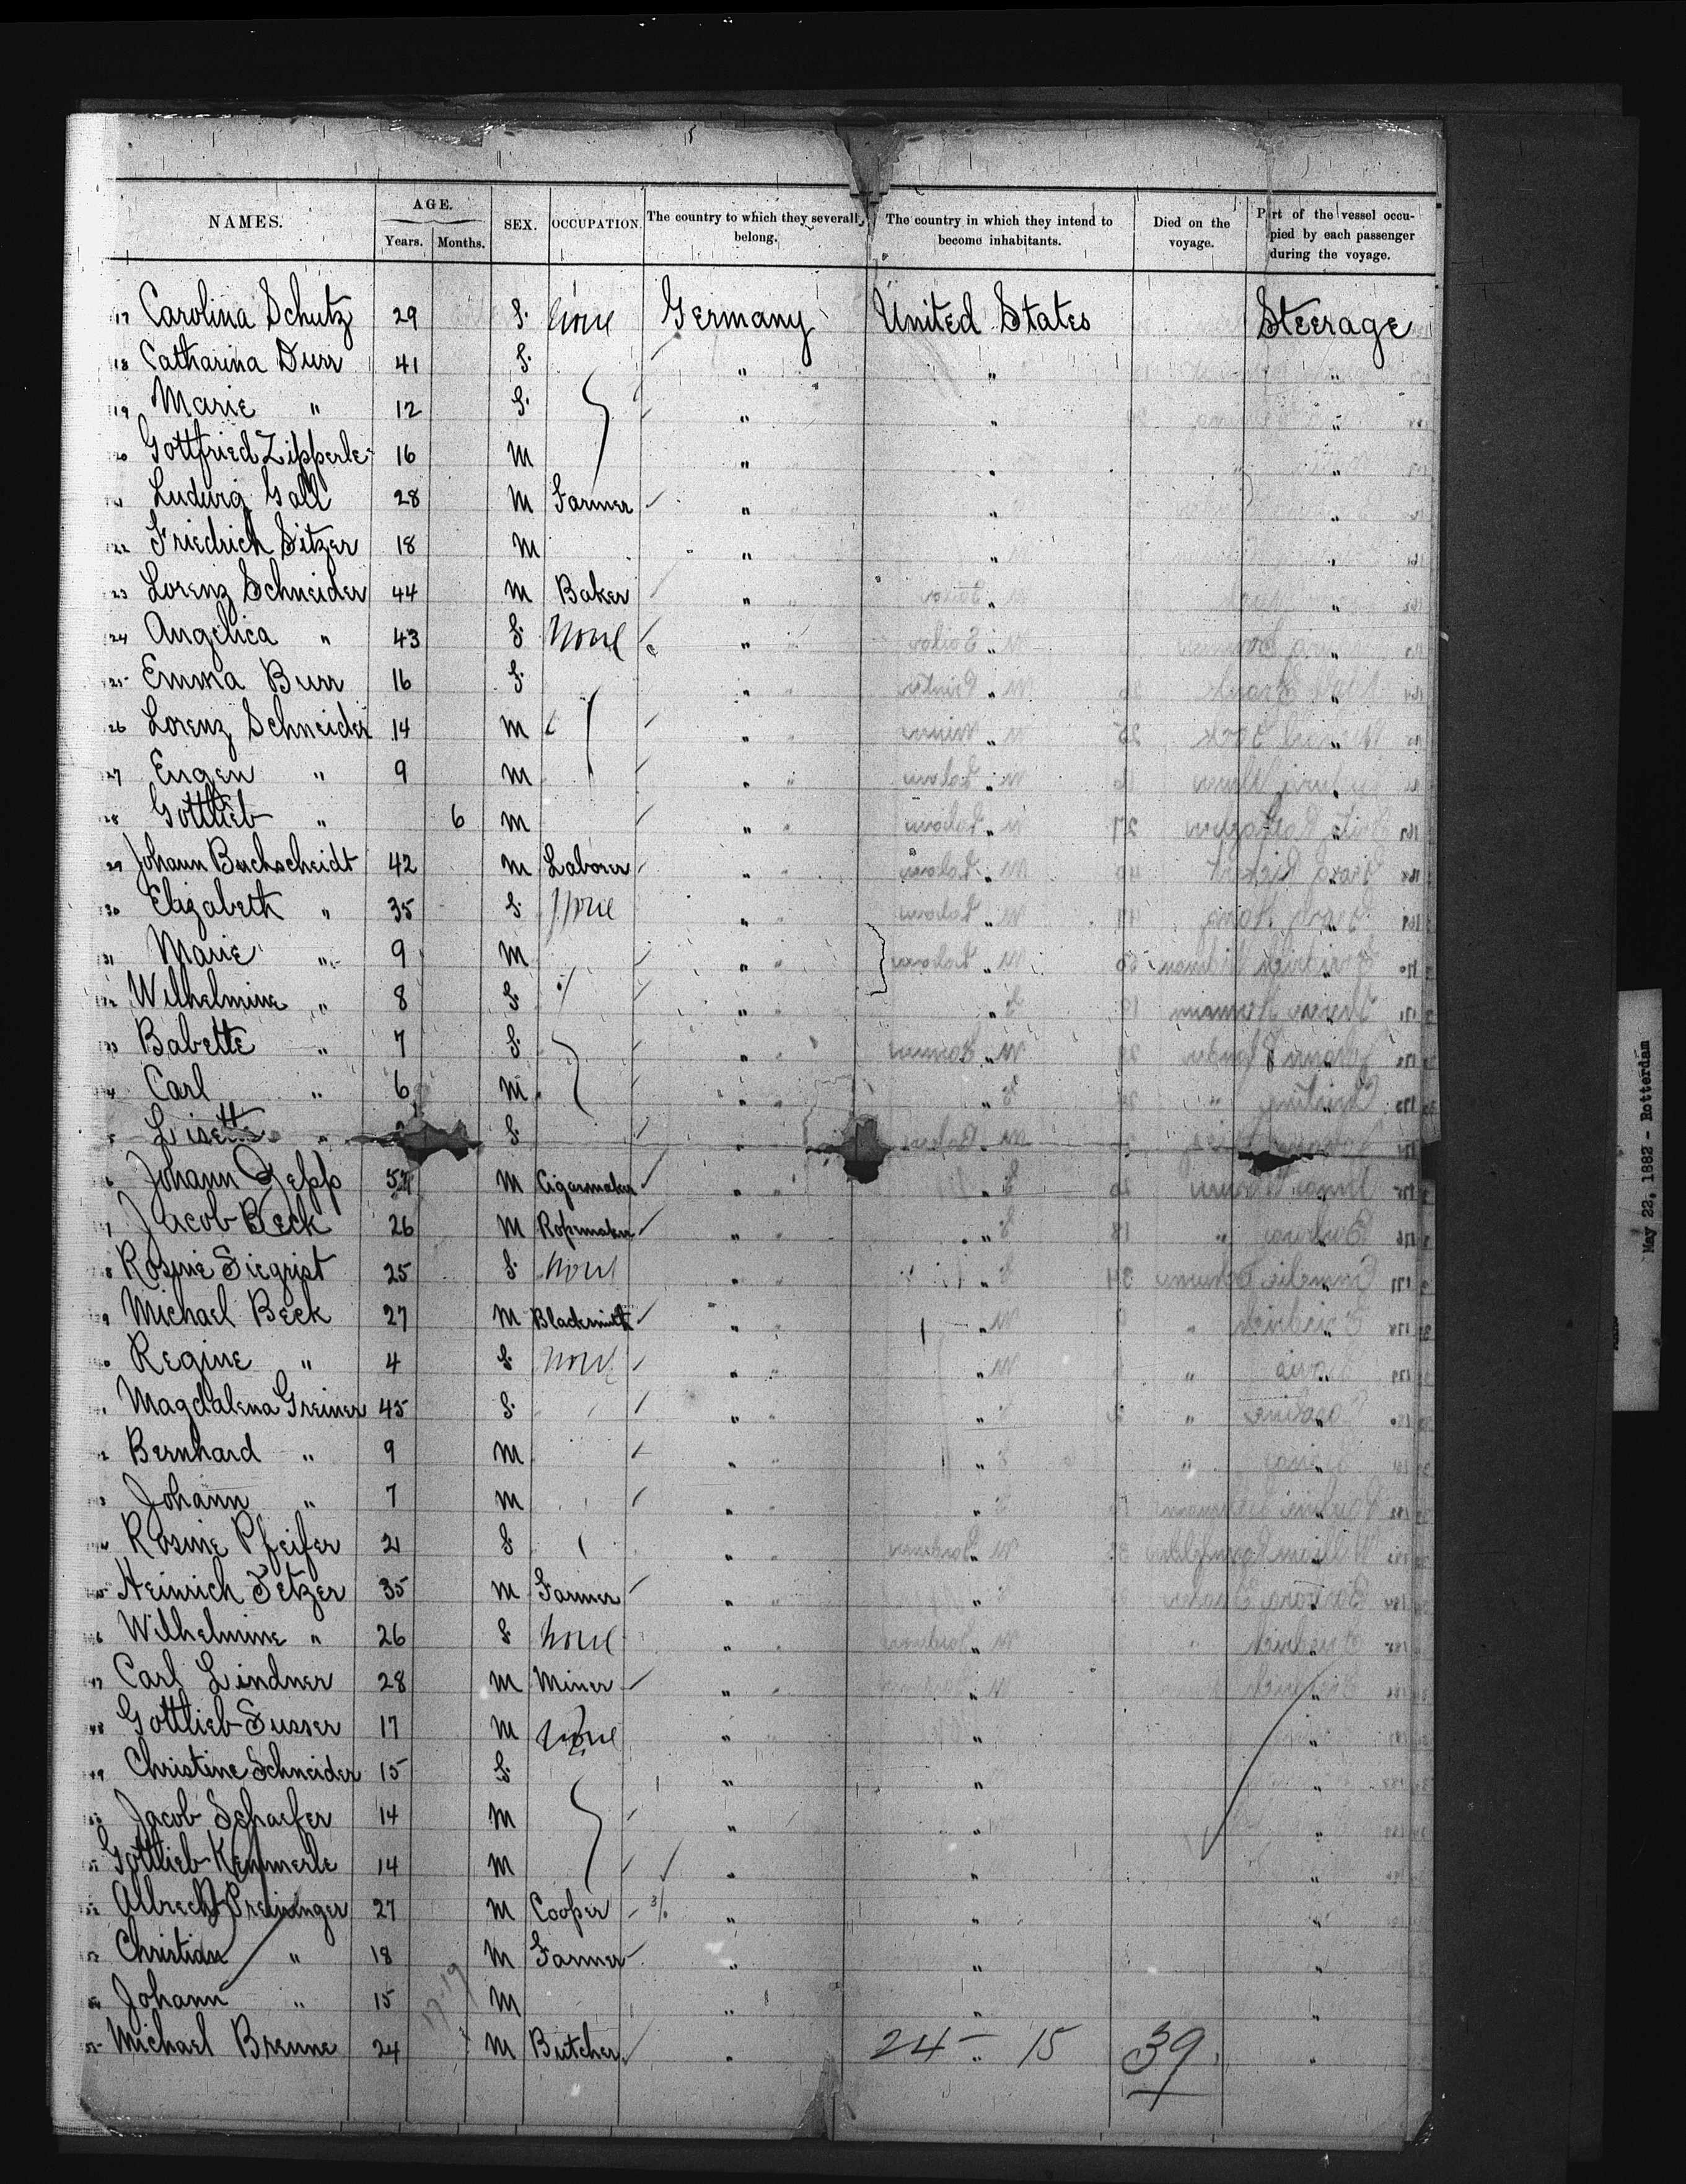 NAMES. AGE. Years. Months. SEX. OCCUPATION. The country to which they severally belong. The country in which they intend to become inhabitants. Died on the voyage. Part of the vessel occupied by each passenger during the voyage.
17 Carolina Schutz 29 F. None Germany United States Steerage
18 Catharina Durr 41 F. " " "
19 Marie " 12 F. " " "
20 Gottfried Zipperle 16 M " " "
21 Ludwig Gall 28 M Farmer " " "
22 Friedrich Sitzer 18 M " " "
23 Lorenz Schneider 44 M Baker " " "
24 Angelica " 43 F. None " " "
25 Emma Burr 16 F. " " "
26 Lorenz Schneider 14 M " " "
27 Eugen " 9 M " " "
28 Gottlieb " 6 M " " "
29 Johann Buchscheidt 42 M Laborer " " "
30 Elizabeth " 35 F. None " " "
31 Marie " 9 M " " "
32 Wilhelmine " 8 F. " " "
33 Babette " 7 F. " " "
4 Carl " 6 M " " "
5 Lisette " F. " " "
6 Johann Zepp M Cigarmaker " " "
7 Jacob Beck 26 M Ropemaker " " "
8 Rosine Siegrist 25 F. None " " "
9 Michael Beck 27 M Blacksmith " " "
0 Regine " 4 F. None " " "
1 Magdalena Greiner 45 F. " " "
2 Bernhard " 9 M " " "
3 Johann " 7 M " " "
4 Rosine Pfeifer 21 F. " " "
45 Heinrich Setzer 35 M Farmer " " "
46 Wilhelmine " 26 F. None " " "
47 Carl Lindner 28 M Miner " " "
48 Gottlieb Susser 17 M None " " "
49 Christine Schneider 15 F. " " "
50 Jacob Schaefer 14 M " " "
51 Gottlieb Kemmerle 14 M " " "
52 Albrecht Preininger 27 M Cooper " " "
53 Christian " 18 M Farmer " " "
54 Johann " 15 M " " "
55 Michael Breune 24 M Butcher " " "
24 - 15 39
17-19
May 22, 1882 - Rotterdam